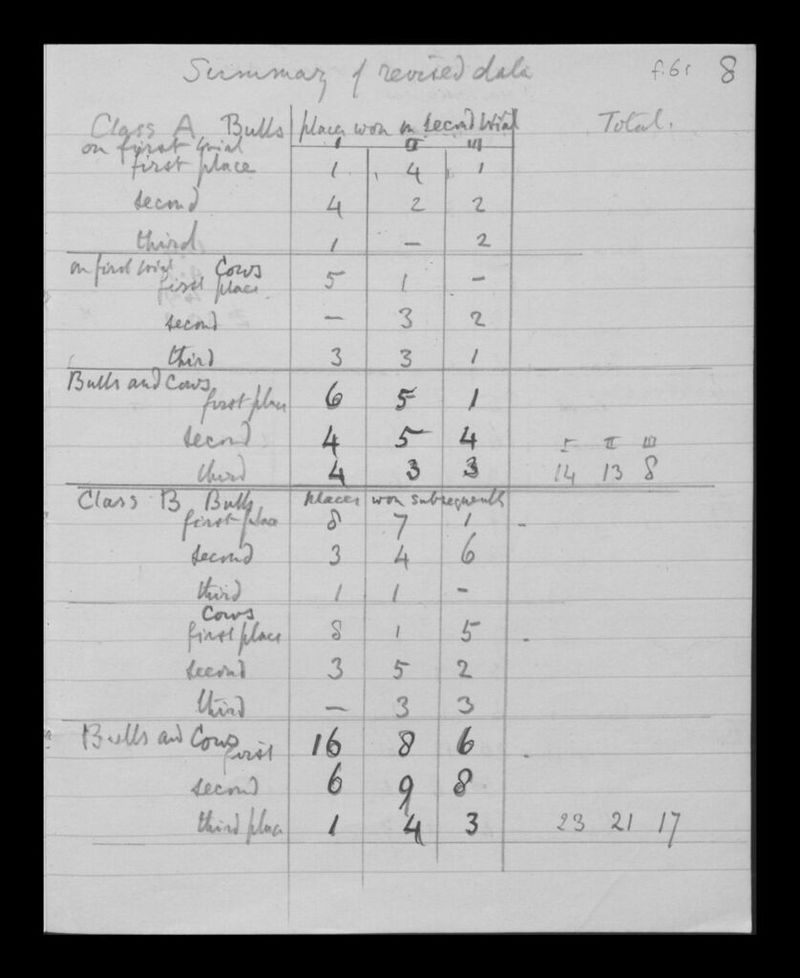 Summary of revised data f.6r 8
Class A Bulls places won on second trial Total.
on first trial I II III
first place 1 4 1
second 4 2 2
third 1 — 2
on first trial Cows
first place 5 1 -
second — 3 2
third 3 3 1
Bulls and Cows
first place 6 5 1
second 4 5 4 I II III
third 4 3 3 14 13 8
Class B Bulls places won subsequently
first place 8 7 1 -
second 3 4 6
third 1 1 -
Cows
first place 8 1 5 -
second 3 5 2
third — 3 3
Bulls and Cows
first 16 8 6 -
second 6 9 8
third place 1 4 3 23 21 17